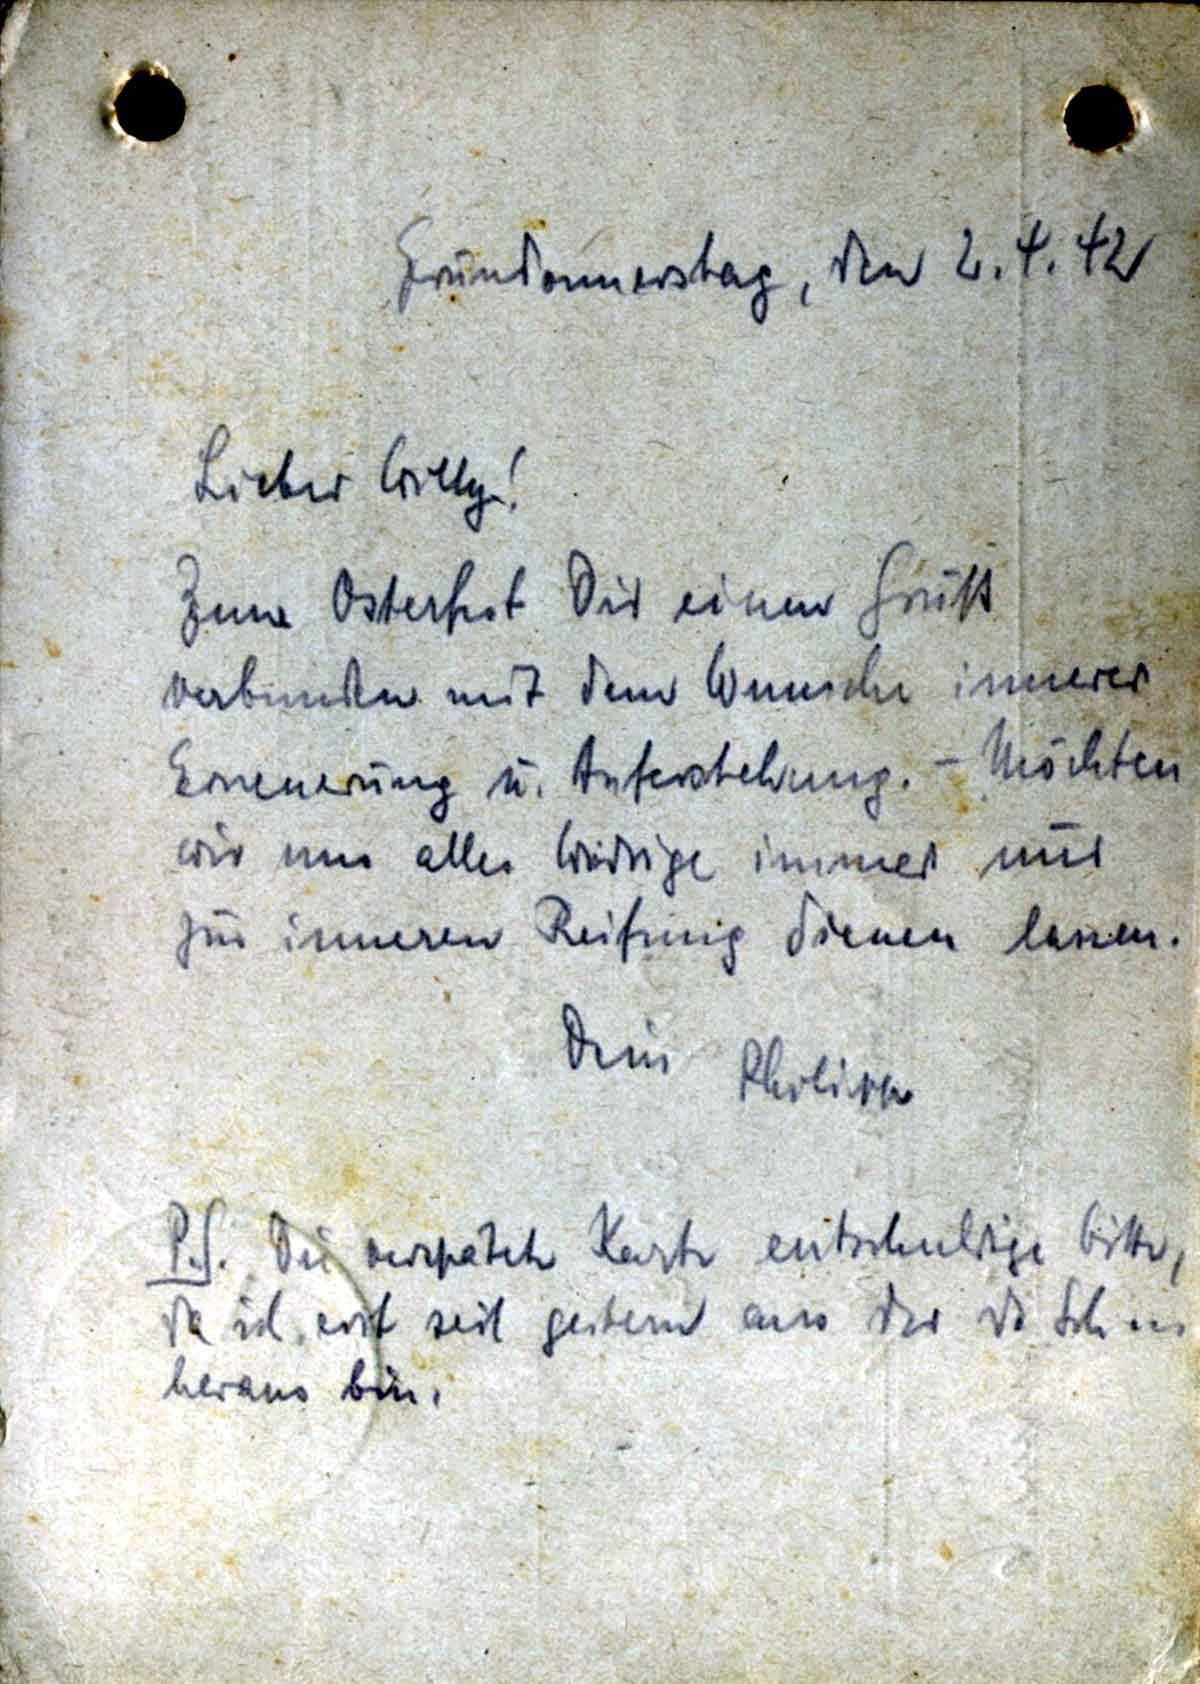 Gründonnerstag, den 2.4.42
Lieber Willy!
Zum Osterfest Dir einen Gruß
verbunden mit dem Wunsche innerer
Erneuerung u. Auferstehung. - Möchten
wir uns alles Widrige immer nur
zur inneren Reifung dienen lassen.
Dein Philipp
P.S. Die verspätete Karte entschuldige bitte,
da ich erst seit gestern aus der
heraus bin.